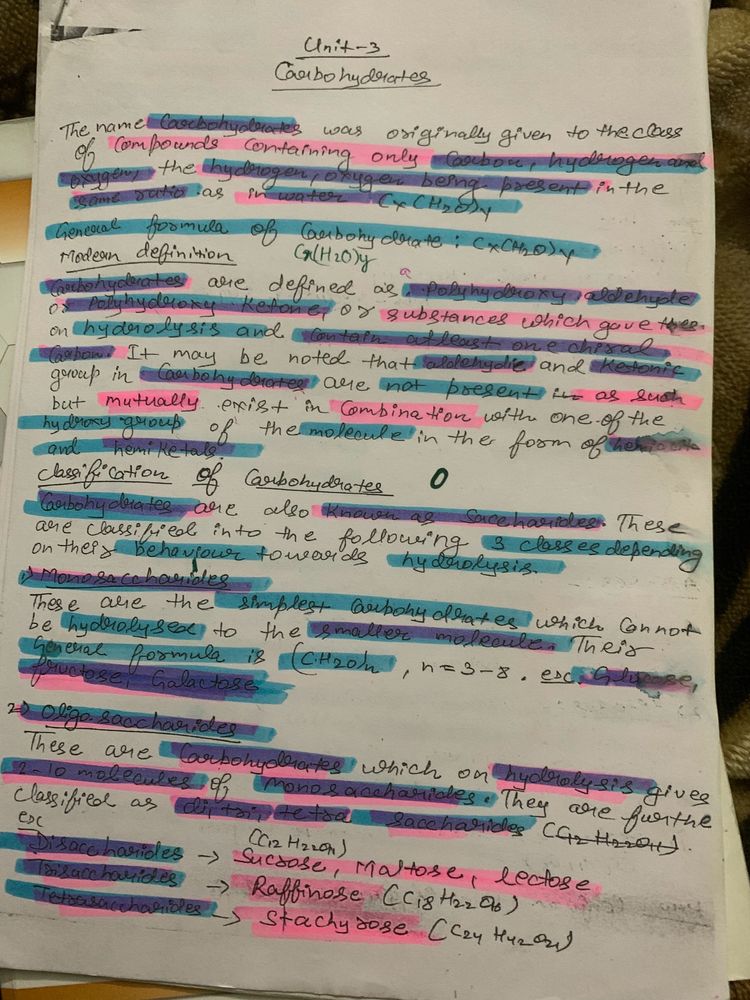 Unit-3
Carbohydrates
The name Carbohydrates was originally given to the class
of Compounds Containing only Carbon, hydrogen and
oxygen, the hydrogen, oxygen being present in the
same ratio as in water Cx(H2O)y
General formula of Carbohydrate : Cx(H2O)y
Modern definition Cx(H2O)y
a
Carbohydrates are defined as Polyhydroxy aldehyde
or Polyhydroxy Ketone, or substances which gave
on hydrolysis and Contain atleast one chiral
Carbon. It may be noted that aldehydic and Ketonic
group in Carbohydrates are not present as such
but mutually exist in Combination with one of the
hydroxy group of the molecule in the form of
and hemiketals.
Classification of Carbohydrates
Carbohydrates are also Known as Saccharides. These
are classified into the following 3 classes depending
on their behaviour towards hydrolysis.
1) Monosaccharides
These are the simplest Carbohydrates which Cannot
be hydrolysed to the smaller molecule. Their
General formula is (CH2O)n , n = 3-8. Glucose,
fructose, Galactose
2) Oligosaccharides
These are Carbohydrates which on hydrolysis gives
2-10 molecules of monosaccharides. They are furthe
Classified as di, tri, tetra saccharides (C12 H22O11).
(C12 H22O11)
Disaccharides → Sucrose, Maltose, lectose
Trisaccharides → Raffinose (C18 H22O16)
Tetrasaccharides → Stachyrose (C24 H42O21)